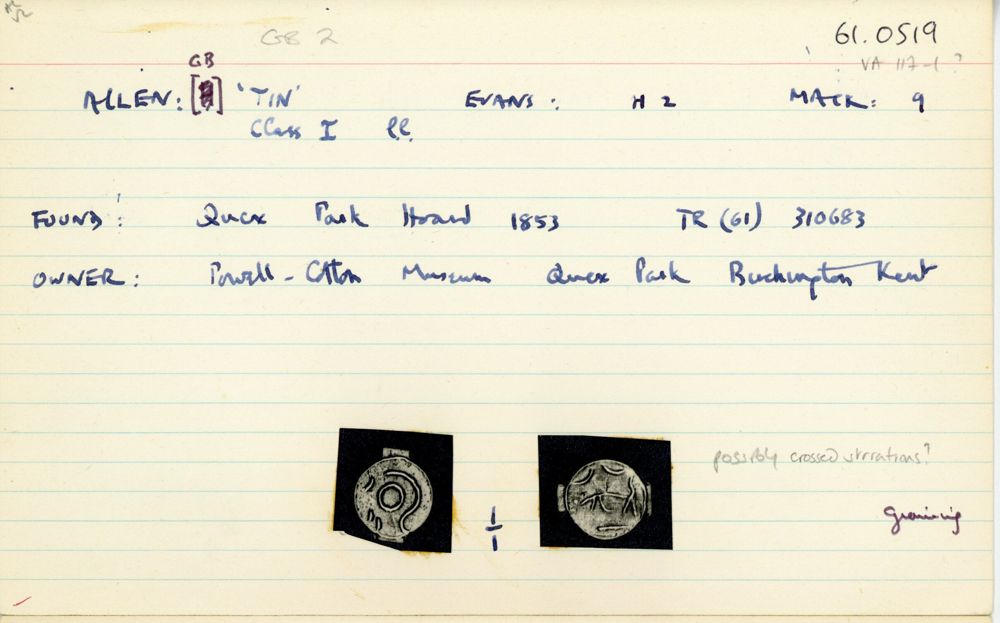 GB 2
61.0519
VA 117-1 ?
GB
ALLEN: [ ] 'TIN' EVANS: H 2 MACK: 9
Class I ll.
FOUND: Quex Park Hoard 1853 TR (61) 310683
OWNER: Powell-Cotton Museum Quex Park Birchington Kent
possibly crossed striations?
1/1